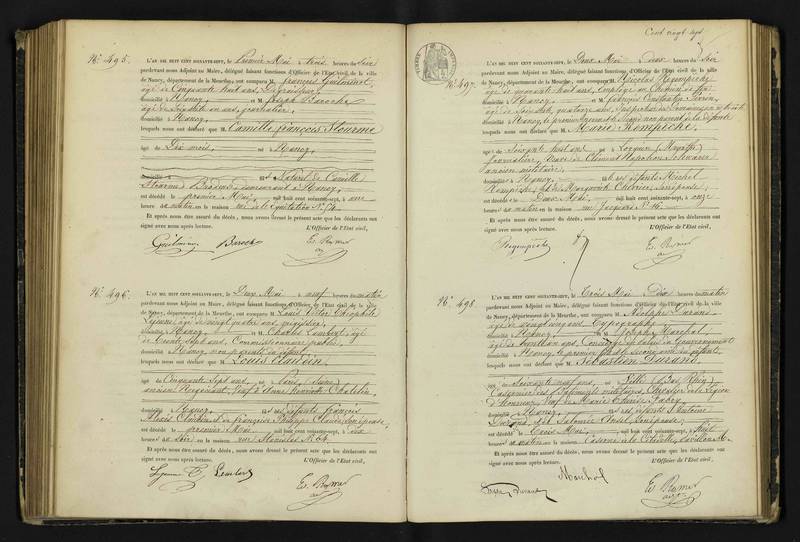 N° 495.
L'AN MIL HUIT CENT SOIXANTE-SEPT, le Premier Mai à trois heures du Soir
pardevant nous Adjoint au Maire, délégué faisant fonctions d'Officier de l'Etat civil de la ville
de Nancy, département de la Meurthe, ont comparu M. François Guilminot
âgé de Cinquante huit ans,
domicilié à Nancy, et M. Joseph Baroche
âgé de Soixante ans, journalier,
domicilié à Nancy
lesquels nous ont déclaré que M. Camille François Stourme
âgé de Dix mois, né à Nancy,
domicilié à Naturel de Camille
Stourme, Brodeuse demeurant à Nancy,
est décédé le premier Mai, mil huit cent soixante-sept, à une
heure du matin en la maison rue de l'Equitation N°
Et après nous être assuré du décès, nous avons dressé le présent acte que les déclarants ont
signé avec nous après lecture. L'Officier de l'Etat civil,
Guilminot Baroche
N° 496.
L'AN MIL HUIT CENT SOIXANTE-SEPT, le Deux Mai à neuf heures du matin
pardevant nous Adjoint au Maire, délégué faisant fonctions d'Officier de l'Etat civil de la ville
de Nancy, département de la Meurthe, ont comparu M. Louis Victor Théophile
Lejeune, âgé de vingt quatre ans, négociant,
domicilié à Nancy et M. Charles Lambert, âgé
de Trente Sept ans, Commissionnaire public,
domicilié à Nancy, non parents du défunt
lesquels nous ont déclaré que M. Louis
âgé de Cinquante Sept ans, né à Paris, (Seine)
ancien Négociant, Veuf d'Anne Henriette Chatelin,
domicilié à Nancy et des défunts François
Alexis et de Françoise Philippe
est décédé le premier Mai, mil huit cent soixante-sept, à six
heures du Soir en la maison rue Stanislas N° 64.
Et après nous être assuré du décès, nous avons dressé le présent acte que les déclarants ont
signé avec nous après lecture. L'Officier de l'Etat civil,
Lejeune Lambert
Cent vingt sept
N° 497.
L'AN MIL HUIT CENT SOIXANTE-SEPT, le Deux Mai à Deux heures du Soir
pardevant nous Adjoint au Maire, délégué faisant fonctions d'Officier de l'Etat civil de la ville
de Nancy, département de la Meurthe, ont comparu M. Nicolas
âgé de quarante huit ans, Employé au Chemin de fer
domicilié à Nancy, et M. François Constantin
âgé de Soixante quatorze ans,
domicilié à Nancy, le premier second non parent de la défunte
lesquels nous ont déclaré que M. Marie
âgé de Soixante huit ans, né à Lorquin (Meurthe)
journalière, Veuve de Clément Napoléon
ancien militaire,
domicilié à Nancy et des défunts Michel
est décédé le Deux Mai, mil huit cent soixante-sept, à onze
heures du matin en la maison rue Jacquard N° 16.
Et après nous être assuré du décès, nous avons dressé le présent acte que les déclarants ont
signé avec nous après lecture. L'Officier de l'Etat civil,
N° 498.
L'AN MIL HUIT CENT SOIXANTE-SEPT, le Trois Mai à Dix heures du matin
pardevant nous Adjoint au Maire, délégué faisant fonctions d'Officier de l'Etat civil de la ville
de Nancy, département de la Meurthe, ont comparu M. Adolphe Durand
âgé de vingt cinq ans, Typographe
domicilié à Nancy, et M. Joseph Marchal
âgé de trente ans, Concierge au Palais du Gouvernement
domicilié à Nancy, le premier fils le second ami du défunt,
lesquels nous ont déclaré que M. Sébastien Durand,
âgé de Soixante neuf ans, né à (Bas Rhin)
Casernier des Bâtiments militaires, Chevalier de la Légion
d'Honneur, Veuf de Marie
domicilié à Nancy et des défunts Antoine
Durand, et de Salomé
est décédé le Trois Mai, mil huit cent soixante-sept, à huit
heures du matin en la maison Caserne de la Citadelle, pavillon
Et après nous être assuré du décès, nous avons dressé le présent acte que les déclarants ont
signé avec nous après lecture. L'Officier de l'Etat civil,
Marchal
Durand